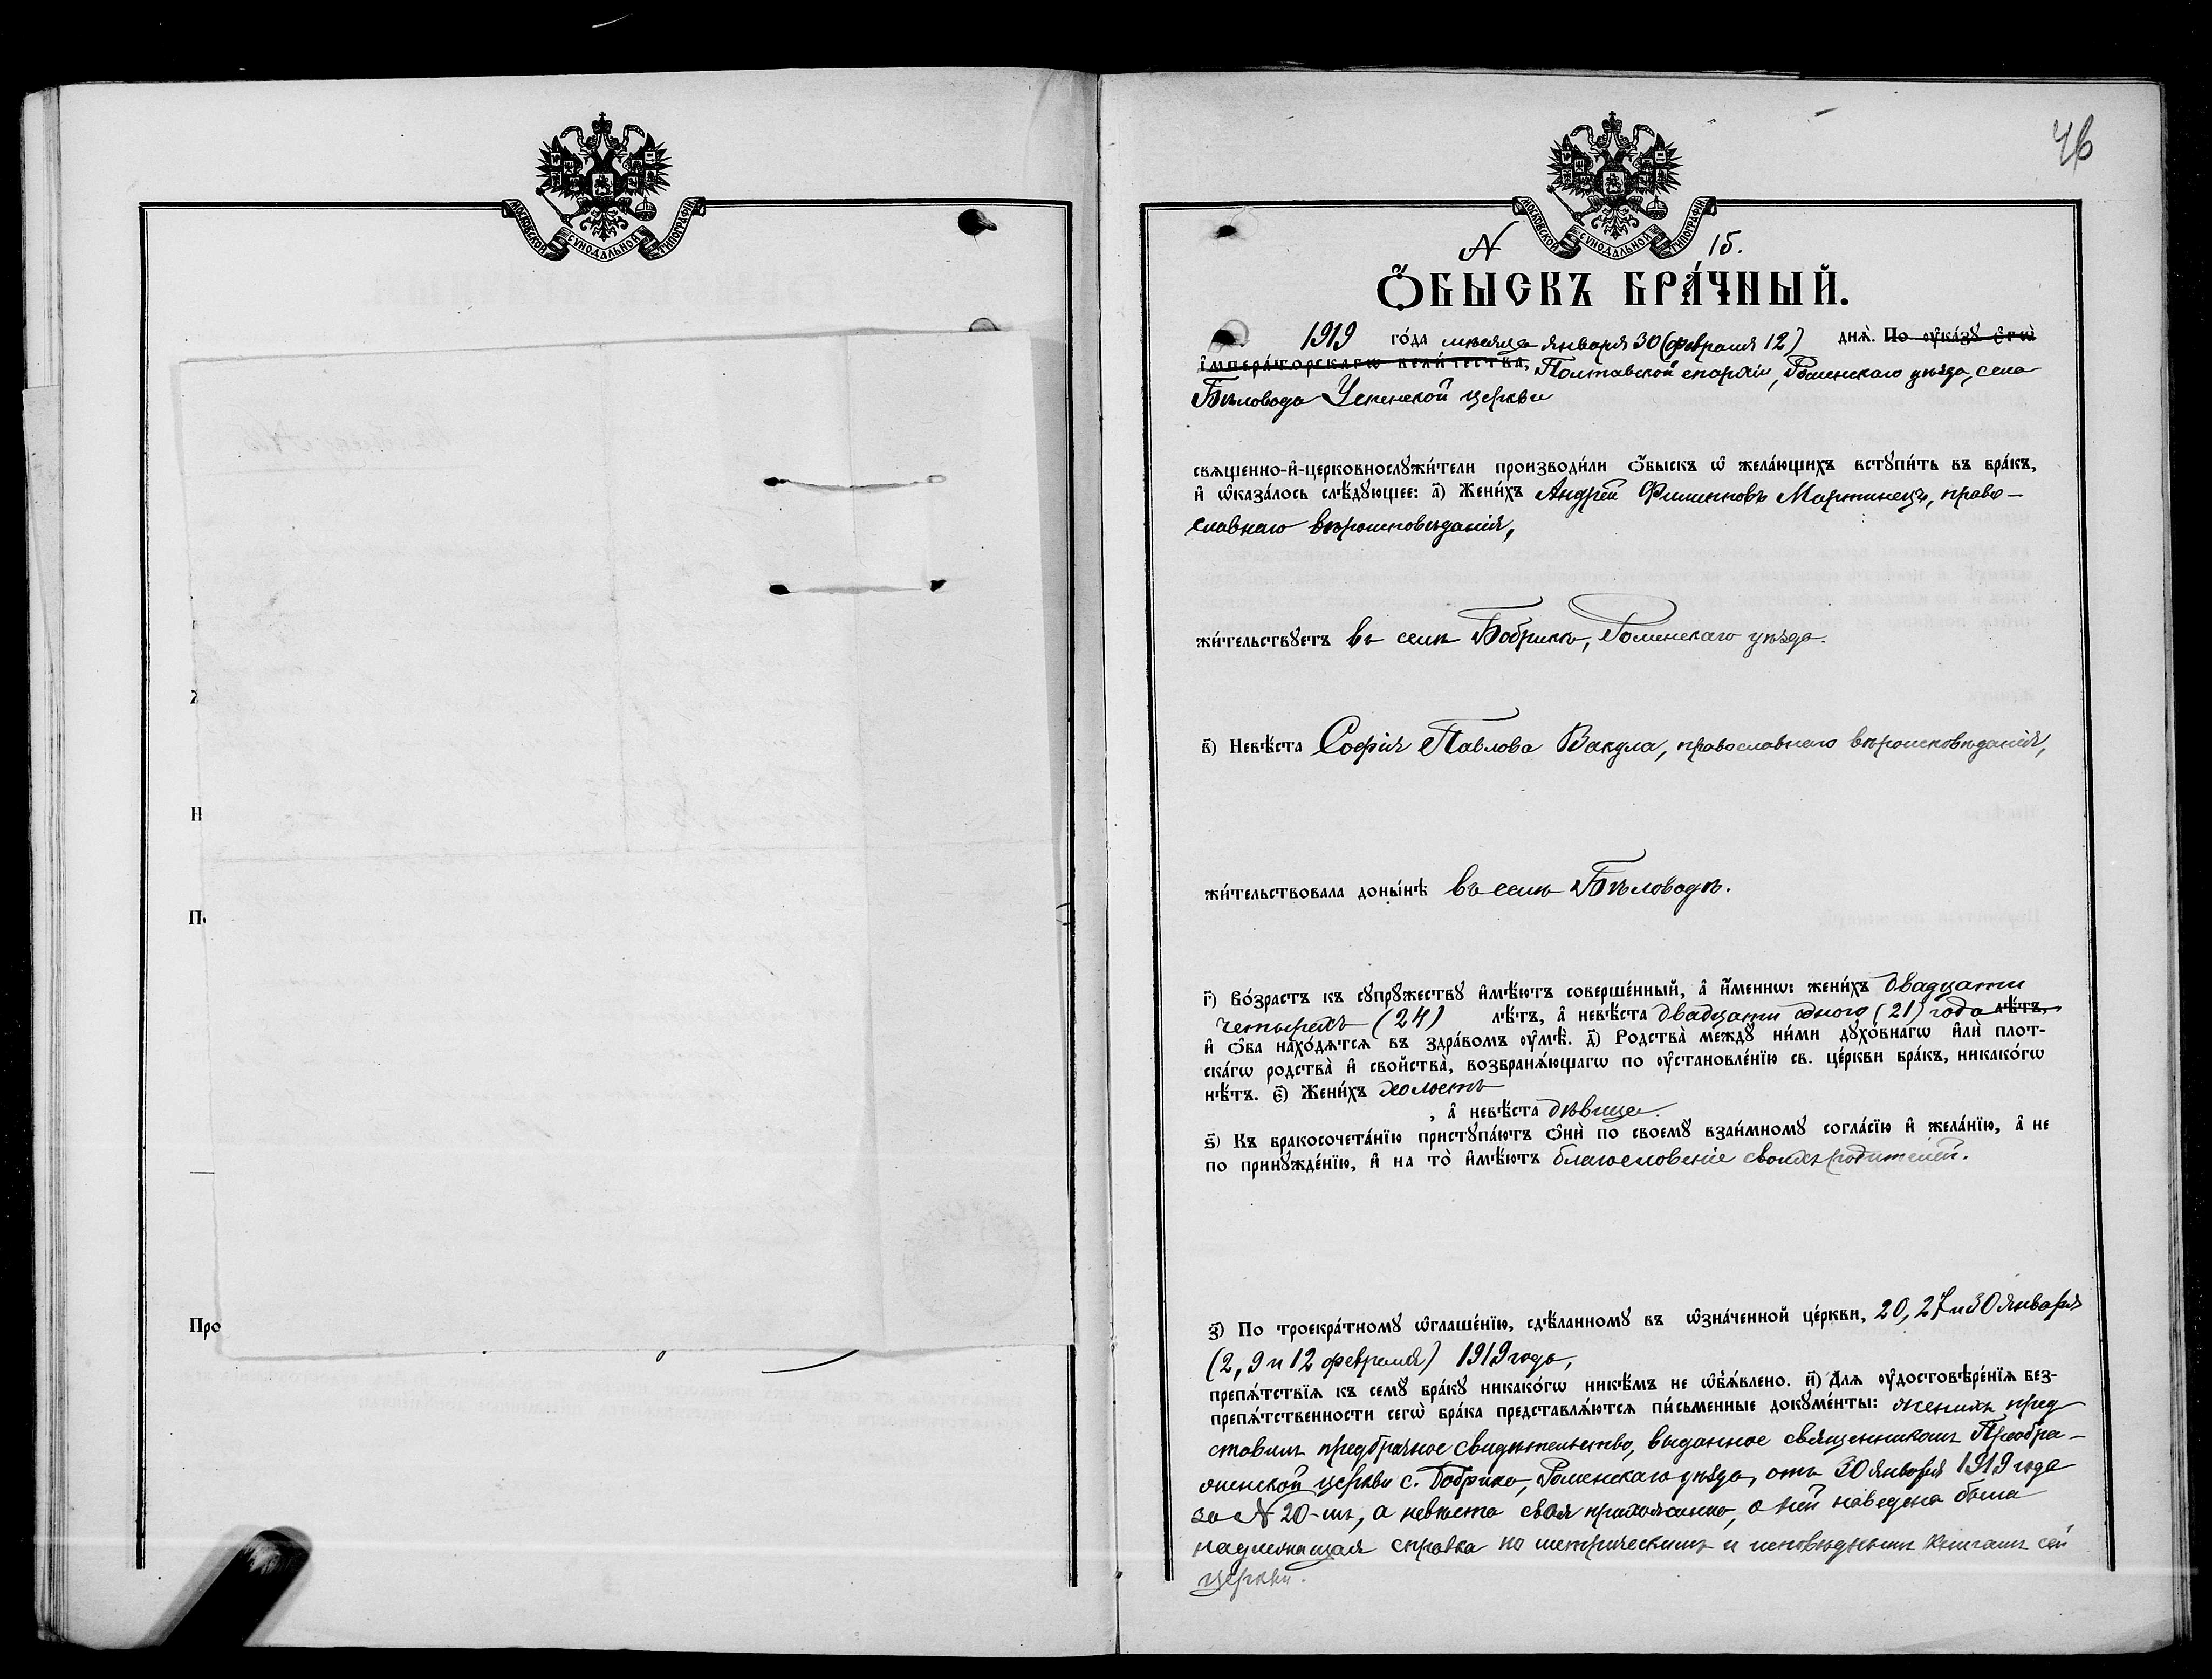 МОСКОВСКОЙ СѴНОДАЛЬНОЙ ТИПОГРАФІИ
Н
Про
46
МОСКОВСКОЙ СѴНОДАЛЬНОЙ ТИПОГРАФІИ
№ 15.
Ѻ҆БЫСКЪ БРА́ЧНЫЙ.
1919 го́да мѣсяца января 30 (февраля 12) днѧ̀. По ᲂу҆ка́зꙋ є҆гѡ̀
і҆мпера́торскагѡ вели́чества, Полтавской епархіи, Роменскаго уѣзда, села
Бѣловода Успенской церкви
свѧщенно-и҆-церковнослꙋжи́тели производи́ли ѻ҆́быскъ ѡ҆ жела́ющихъ встꙋпи́ть въ бра́къ,
и҆ ѡ҆каза́лось слѣ́дꙋющее: а҃) Жени́хъ Андрей Филипповъ Мартинецъ, право-
славнаго вѣроисповѣданія,
жи́тельствꙋетъ въ селѣ Бобрикѣ, Роменскаго уѣзда.
в҃) Невѣ́ста Софія Павлова Вакула, православнаго вѣроисповѣданія,
жи́тельствовала доны́нѣ въ селѣ Бѣловодѣ.
г҃) Во́зрастъ къ сꙋпрꙋ́жествꙋ и҆мѣ́ютъ соверше́нный, а҆ и҆́меннѡ: жени́хъ двадцати
четырехъ (24) лѣ́тъ, а҆ невѣ́ста двадцати одного (21) года лѣ́тъ,
и҆ ѻ҆́ба нахо́дѧтсѧ въ здра́вомъ ᲂу҆мѣ̀. д҃) Родства̀ междꙋ̀ ни́ми дꙋхо́внагѡ и҆лѝ плот-
ска́гѡ родства̀ и҆ свойства̀, возбранѧ́ющагѡ по ᲂу҆становле́нїю св. це́ркви бра́къ, никако́гѡ
нѣ́тъ. є҃) Жени́хъ холостъ
, а҆ невѣ́ста дѣвица.
ѕ҃) Къ бракосочета́нїю пристꙋпа́ютъ ѻ҆нѝ по своемꙋ̀ взаи́мномꙋ согла́сїю и҆ жела́нїю, а҆ не
по принꙋжде́нїю, и҆ на то̀ и҆мѣ́ютъ благословеніе своихъ родителей.
з҃) По троекра́тномꙋ ѡ҆глаше́нїю, сдѣ́ланномꙋ въ ѡ҆зна́ченной це́ркви, 20, 27 и 30 января
(2, 9 и 12 февраля) 1919 года,
препѧ́тствїѧ къ семꙋ̀ бра́кꙋ никако́гѡ никѣ́мъ не ѡ҆б̾ѧ́влено. и҃) Длѧ ᲂу҆достовѣре́нїѧ без-
препѧ́тственности сегѡ̀ бра́ка представлѧ́ютсѧ пи́сьменные докꙋме́нты: женихъ пред
ставилъ предбрачное свидѣтельство, выданное священникомъ Преобра-
женской церкви с. Бобрика, Роменскаго уѣзда, отъ 30 января 1919 года
за № 20-мъ, а невѣста своя прихожанка, о ней наведена была
надлежащая справка по метрическимъ и исповѣднымъ книгамъ сей
церкви.